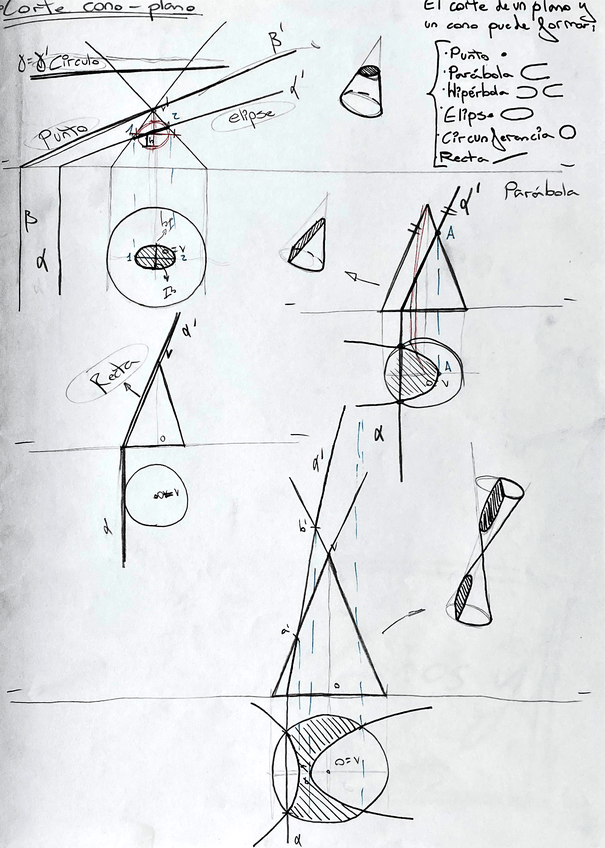 Corte cono-plano
El corte de un plano y
un cono puede formar:
· Punto
· Parábola
· Hipérbola
· Elipse
· Circunferencia
Recta
γ=γ' Círculo
β'
α'
Punto
elipse
1
2
β
α
1
2
Parábola
α'
A
A
α
Recta
α'
o
o=v
α
α'
b'
v
a'
o
o=v
α